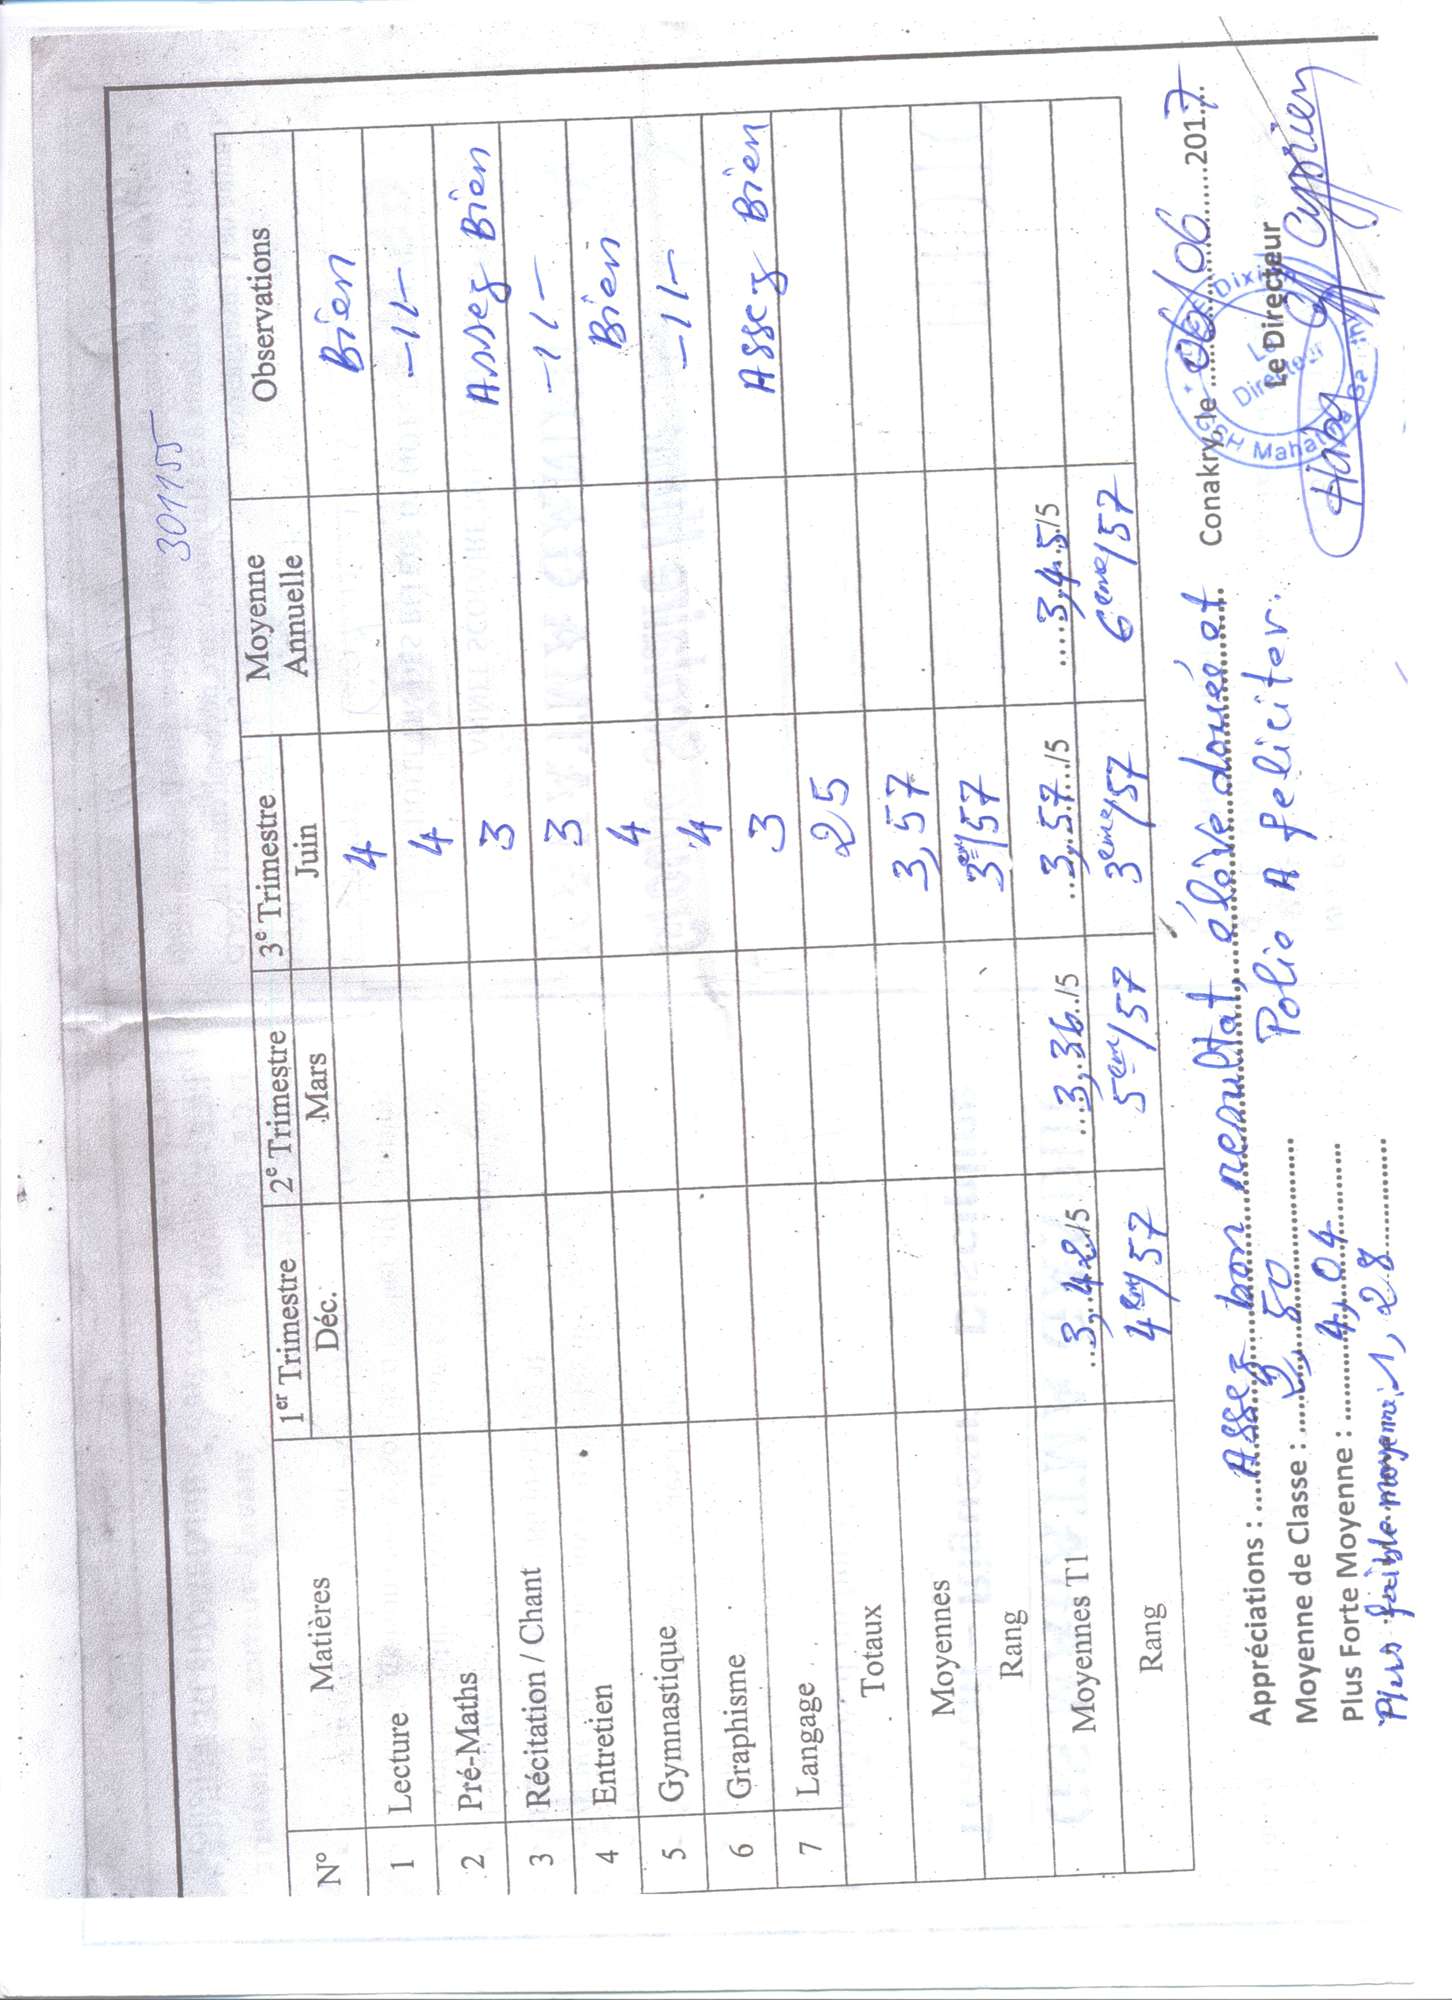 301155
N° Matières 1er Trimestre 2e Trimestre 3e Trimestre Moyenne Annuelle Observations
Déc. Mars Juin
1 Lecture 4 Bien
2 Pré-Maths 4 -11-
3 Récitation / Chant 3 Assez Bien
4 Entretien 3 -11-
5 Gymnastique 4 Bien
6 Graphisme 4 -11-
7 Langage 3 Assez Bien
Totaux 25
Moyennes 3,57
Rang 3em/57
Moyennes T1 3,42./5 3,36./5 3,57./5 3,45/5
Rang 4em/57 5em/57 3eme/57 6eme/57
Appréciations : Assez bon resultat, élève doué et Conakry, le 06/06 2017
Polie A feliciter.
Moyenne de Classe : 50
Le Directeur
Plus Forte Moyenne : 4,04
Plus faible moyenne 1,28
GSH Mahatma
Le Directeur
Dixi
Cyprien